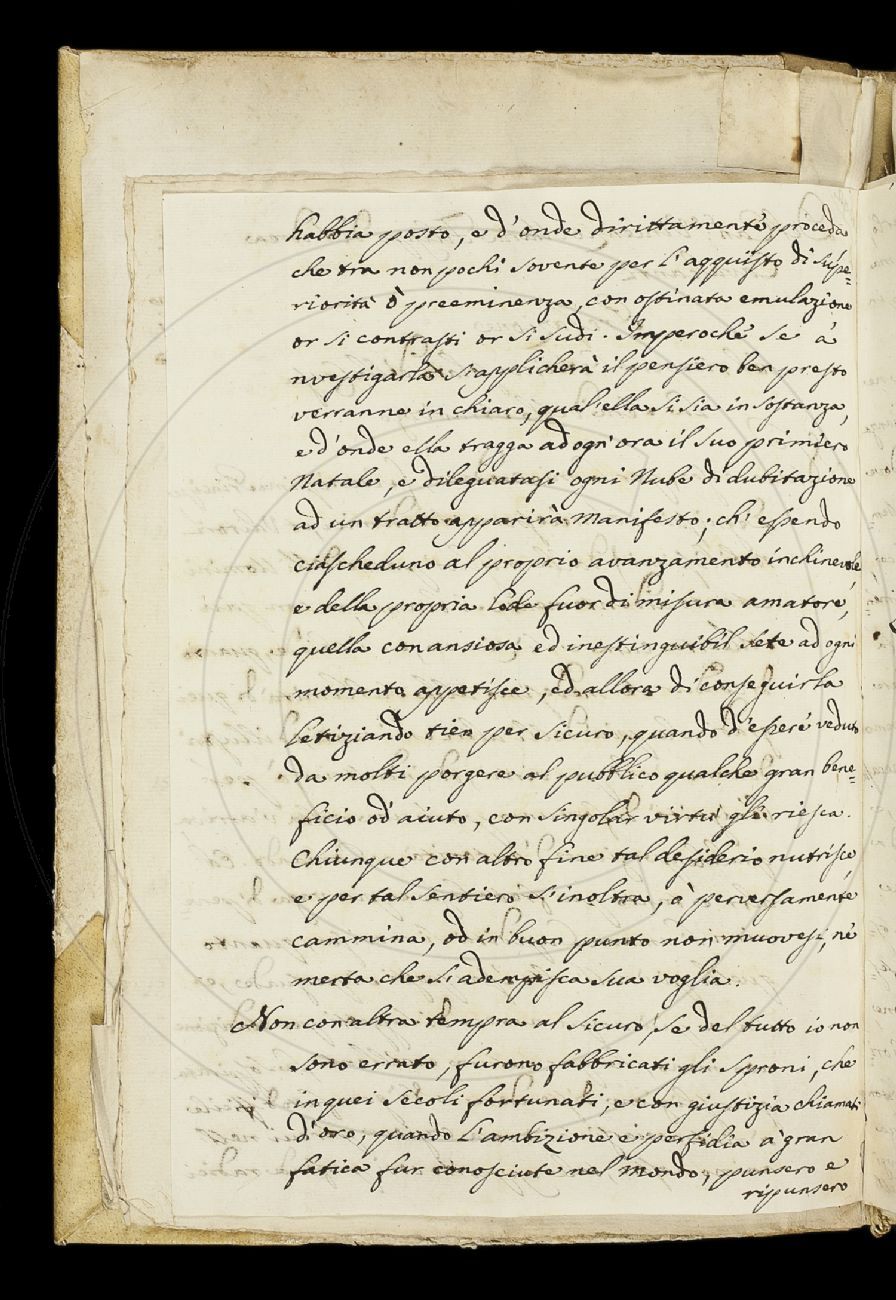 habbia posto, e d'onde dirittamente proceda
che tra non pochi sovente per l'acquisto di supe=
riorità ò preeminenza, con ostinata emulazione
or si contrasti or si sudi. Imperoche se à
nvestigarla s'applicherà il pensiero ben presto
verranne in chiaro, qual'ella si sia in sostanza,
e d'onde ella tragga ad ogn'ora il suo primiero
Natale, e dileguatasi ogni Nube di dubitazione
ad un tratto apparirà manifesto; ch'essendo
ciascheduno al proprio avanzamento inchinevole
e della propria lode fuor di misura amatore,
quella con ansiosa, ed inestinguibil sete ad ogni
momento appetisce, ed allora di conseguirla
letiziando tien per sicuro, quando d'essere veduto
da molti porgere al pubblico qualche gran bene=
ficio od aiuto, con singolar virtù gli riesca.
Chiunque con altro fine tal desiderio nutrisce,
e per tal sentiero s'inoltra, ò perversamente
cammina, od in buon punto non muovesi, nè
merta che si adempisca sua voglia.
Non con altra tempra al sicuro, se del tutto io non
sono errato, furono fabbricati gli sproni, che
in quei secoli fortunati, e con giustizia chiamati
d'oro, quando l'ambizione e perfidia à gran
fatica fur conosciute nel mondo, punsero e
ripunsero